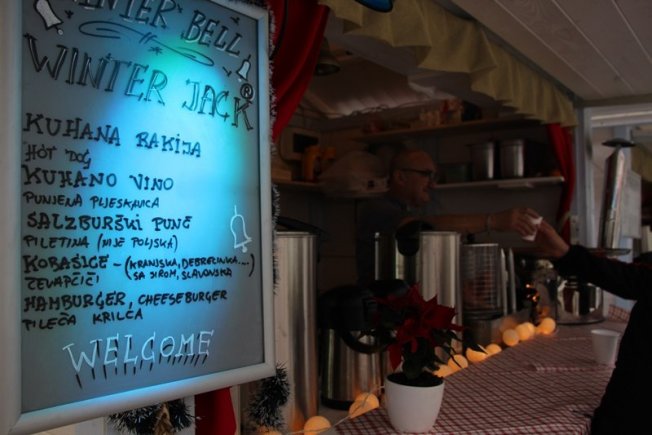 WINTER BELL
WINTER JACK ®
KUHANA RAKIJA
HOT DOG
KUHANO VINO
PUNJENA PLJESKAVICA
SALZBURŠKI PUNČ
PILETINA (NIJE POLJSKA)
KOBASICE - (KRANJSKA, DEBRECINKA, ....
SA SIROM, SLAVONSKA)
ĆEVAPČIĆI
HAMBURGER, CHEESEBURGER
PILEĆA KRILCA
WELCOME